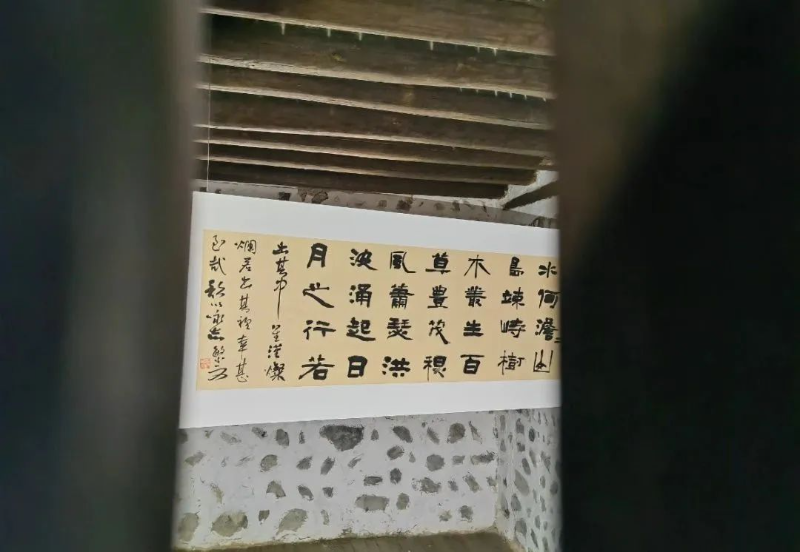 水何澹〻山
島竦峙樹
木叢生百
草豐茂秋
風蕭瑟洪
波涌起日
月之行若
出其中星漢燦
爛若出其裡幸甚
至哉歌以詠志